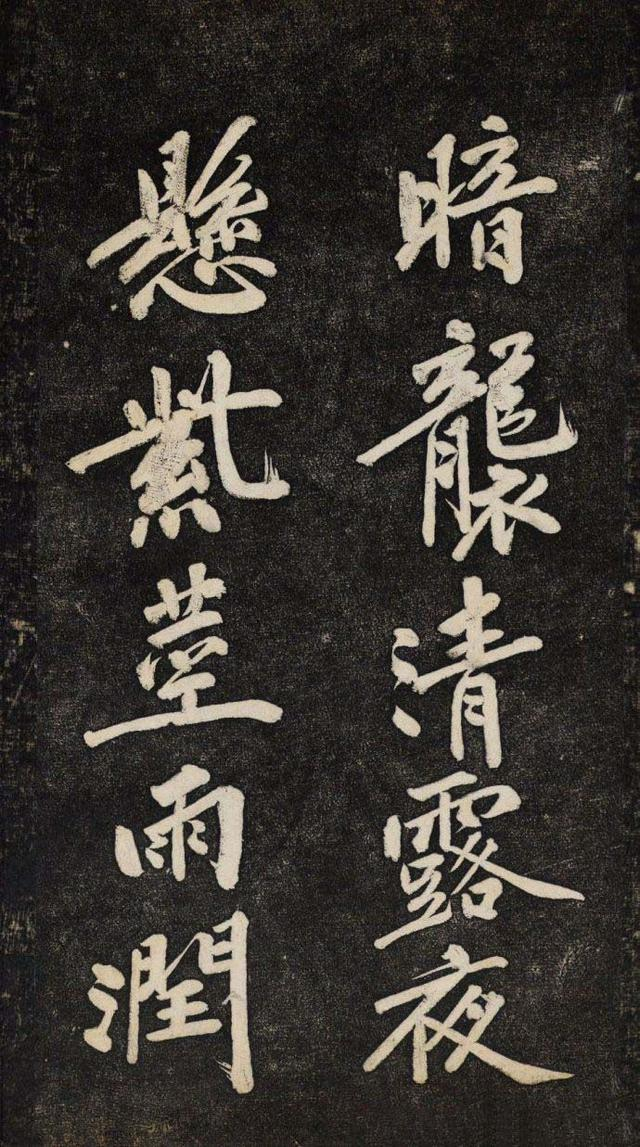 暗襲清露夜
懸紫莖雨潤